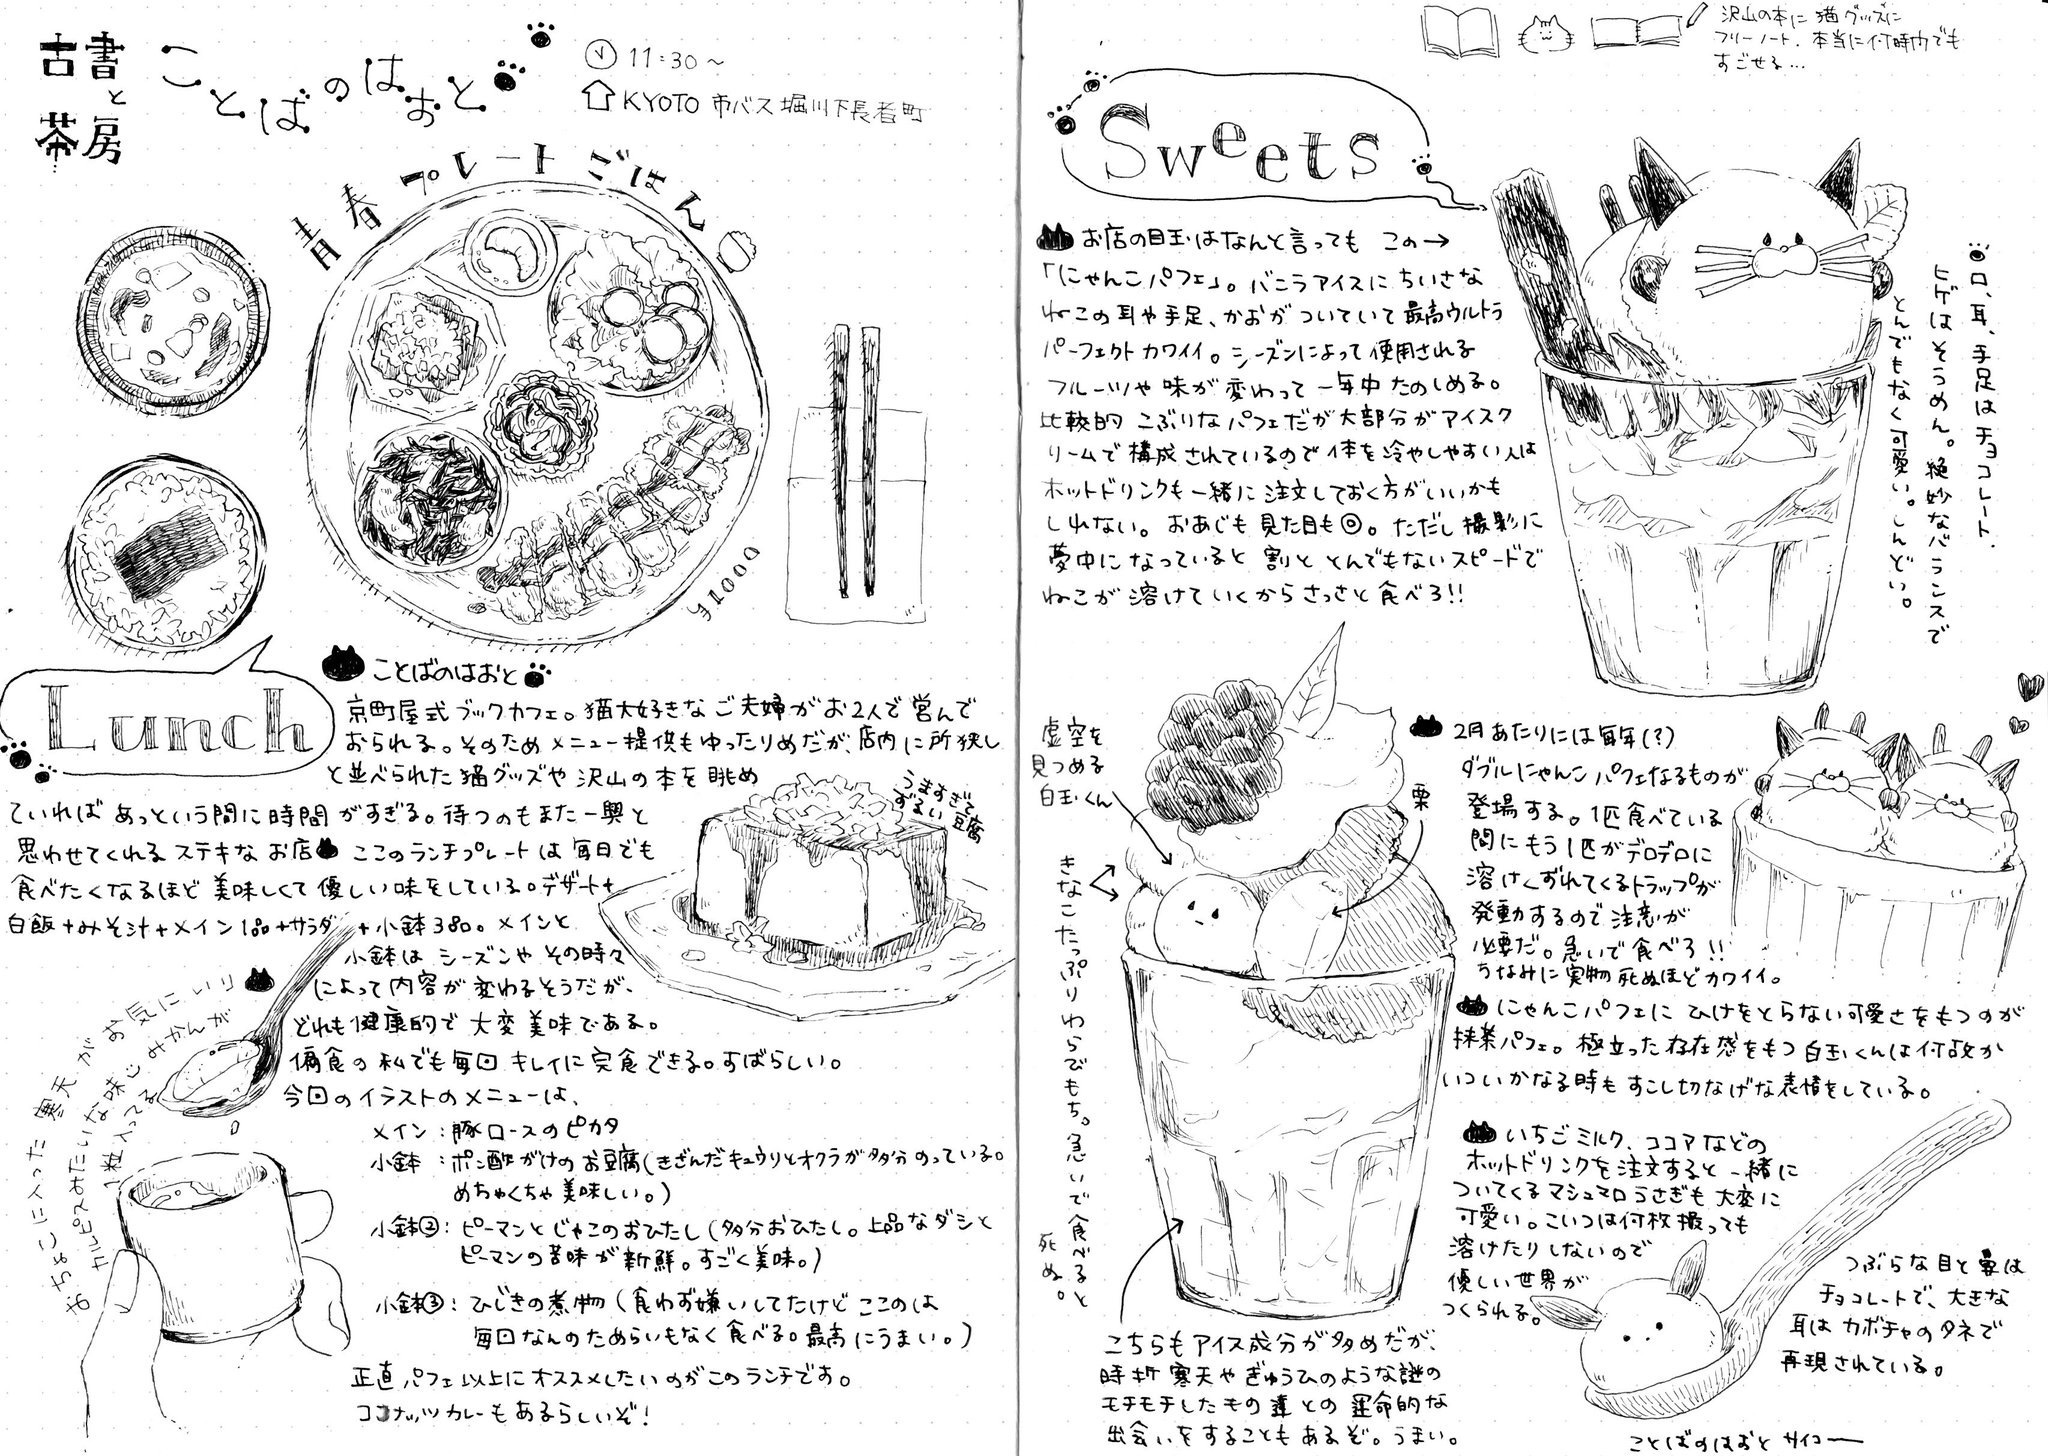 古書と茶房
ことばのはおと
11:30～
KYOTO 市バス堀川下長者町
青春プレートごはん
¥1000
Lunch
ことばのはおと
京町屋式ブックカフェ。猫大好きなご夫婦がお2人で営んで
おられる。そのためメニュー提供もゆったりめだが、店内に所狭し
と並べられた猫グッズや沢山の本を眺め
ていればあっという間に時間がすぎる。待つのもまた一興と
思わせてくれるステキなお店 ここのランチプレートは毎日でも
食べたくなるほど美味しくて優しい味をしている。デザート+
白飯+みそ汁+メイン1品+サラダ+小鉢3品。メインと
小鉢はシーズンやその時々
によって内容が変わるそうだが、
どれも健康的で大変美味である。
偏食の私でも毎回キレイに完食できる。すばらしい。
今回のイラストのメニューは、
メイン:豚ロースのピカタ
小鉢:ポン酢がけのお豆腐(きざんだキュウリとオクラが多分のっている。
めちゃくちゃ美味しい。)
小鉢②:ピーマンとじゃこのおひたし(多分おひたし。上品なダシと
ピーマンの苦味が新鮮。すごく美味。)
小鉢③:ひじきの煮物(食わず嫌いしてたけどここのは
毎回なんのためらいもなく食べる。最高にうまい。)
正直パフェ以上にオススメしたいのがこのランチです。
ココナッツカレーもあるらしいぞ!
うますぎて
ずるい豆腐
おちょこに入った寒天がお気にいり
カルピスみたいな味にみかんが
1粒入ってる
沢山の本に猫グッズに
フリーノート、本当に何時間でも
すごせる…
Sweets
お店の目玉はなんと言っても この→
「にゃんこパフェ」。バニラアイスにちいさな
ねこの耳や手足、かおがついていて最高ウルトラ
パーフェクトカワイイ。シーズンによって使用される
フルーツや味が変わって一年中たのしめる。
比較的こぶりなパフェだが大部分がアイスク
リームで構成されているので体を冷やしやすい人は
ホットドリンクも一緒に注文しておく方がいいかも
しれない。おあじも見た目も◎。ただし撮影に
夢中になっていると割ととんでもないスピードで
ねこが溶けていくからさっさと食べろ!!
口、耳、手足はチョコレート、
ヒゲはそうめん。絶妙なバランスで
とんでもなく可愛い。しんどい。
虚空を
見つめる
白玉くん
栗
きなこたっぷりわらびもち。急いで食べると
死ぬ。
こちらもアイス成分が多めだが、
時折寒天やぎゅうひのような謎の
モチモチしたもの達との運命的な
出会いをすることもあるぞ。うまい。
2月あたりには毎年(?)
ダブルにゃんこパフェなるものが
登場する。1匹食べている
間にもう1匹がデロデロに
溶けくずれてくるトラップが
発動するので注意が
必要だ。急いで食べろ!!
ちなみに実物死ぬほどカワイイ。
にゃんこパフェにひけをとらない可愛さをもつのが
抹茶パフェ。極立った存在感をもつ白玉くんは何故か
いついかなる時もすこし切なげな表情をしている。
いちごミルク、ココアなどの
ホットドリンクを注文すると一緒に
ついてくるマシュマロうさぎも大変に
可愛い。こいつは何枚撮っても
溶けたりしないので
優しい世界が
つくられる。
つぶらな目と鼻は
チョコレートで、大きな
耳はカボチャのタネで
再現されている。
ことばのはおと サイコー